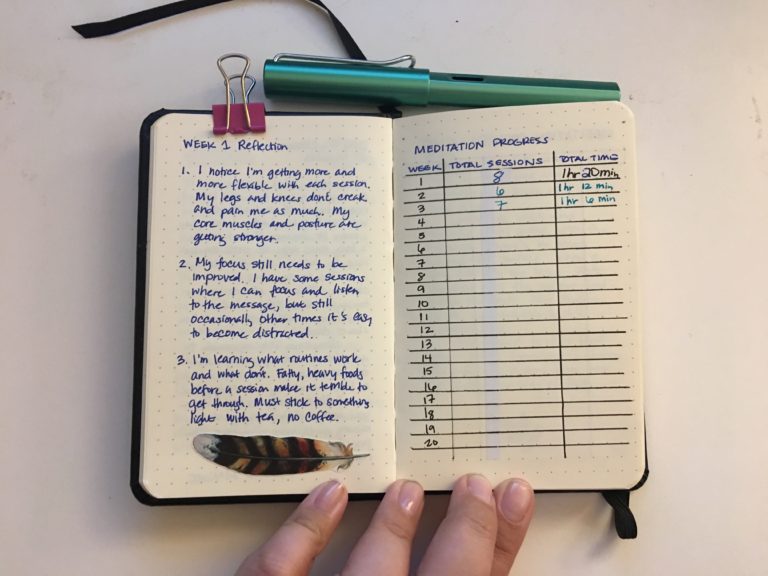 WEEK 1 Reflection
1. I notice I'm getting more and
more flexible with each session.
My legs and knees don't creak
and pain me as much. My
core muscles and posture are
getting stronger.
2. My focus still needs to be
improved. I have some sessions
where I can focus and listen
to the message, but still
occasionally other times it's easy
to become distracted.
3. I'm learning what routines work
and what don't. Fatty, heavy foods
before a session make it terrible to
get through. Must stick to something
light with tea, no coffee.
MEDITATION PROGRESS
WEEK TOTAL SESSIONS TOTAL TIME
1 8 1hr 20min
2 6 1hr 12 min
3 7 1hr 6 min
4
5
6
7
8
9
10
11
12
13
14
15
16
17
18
19
20